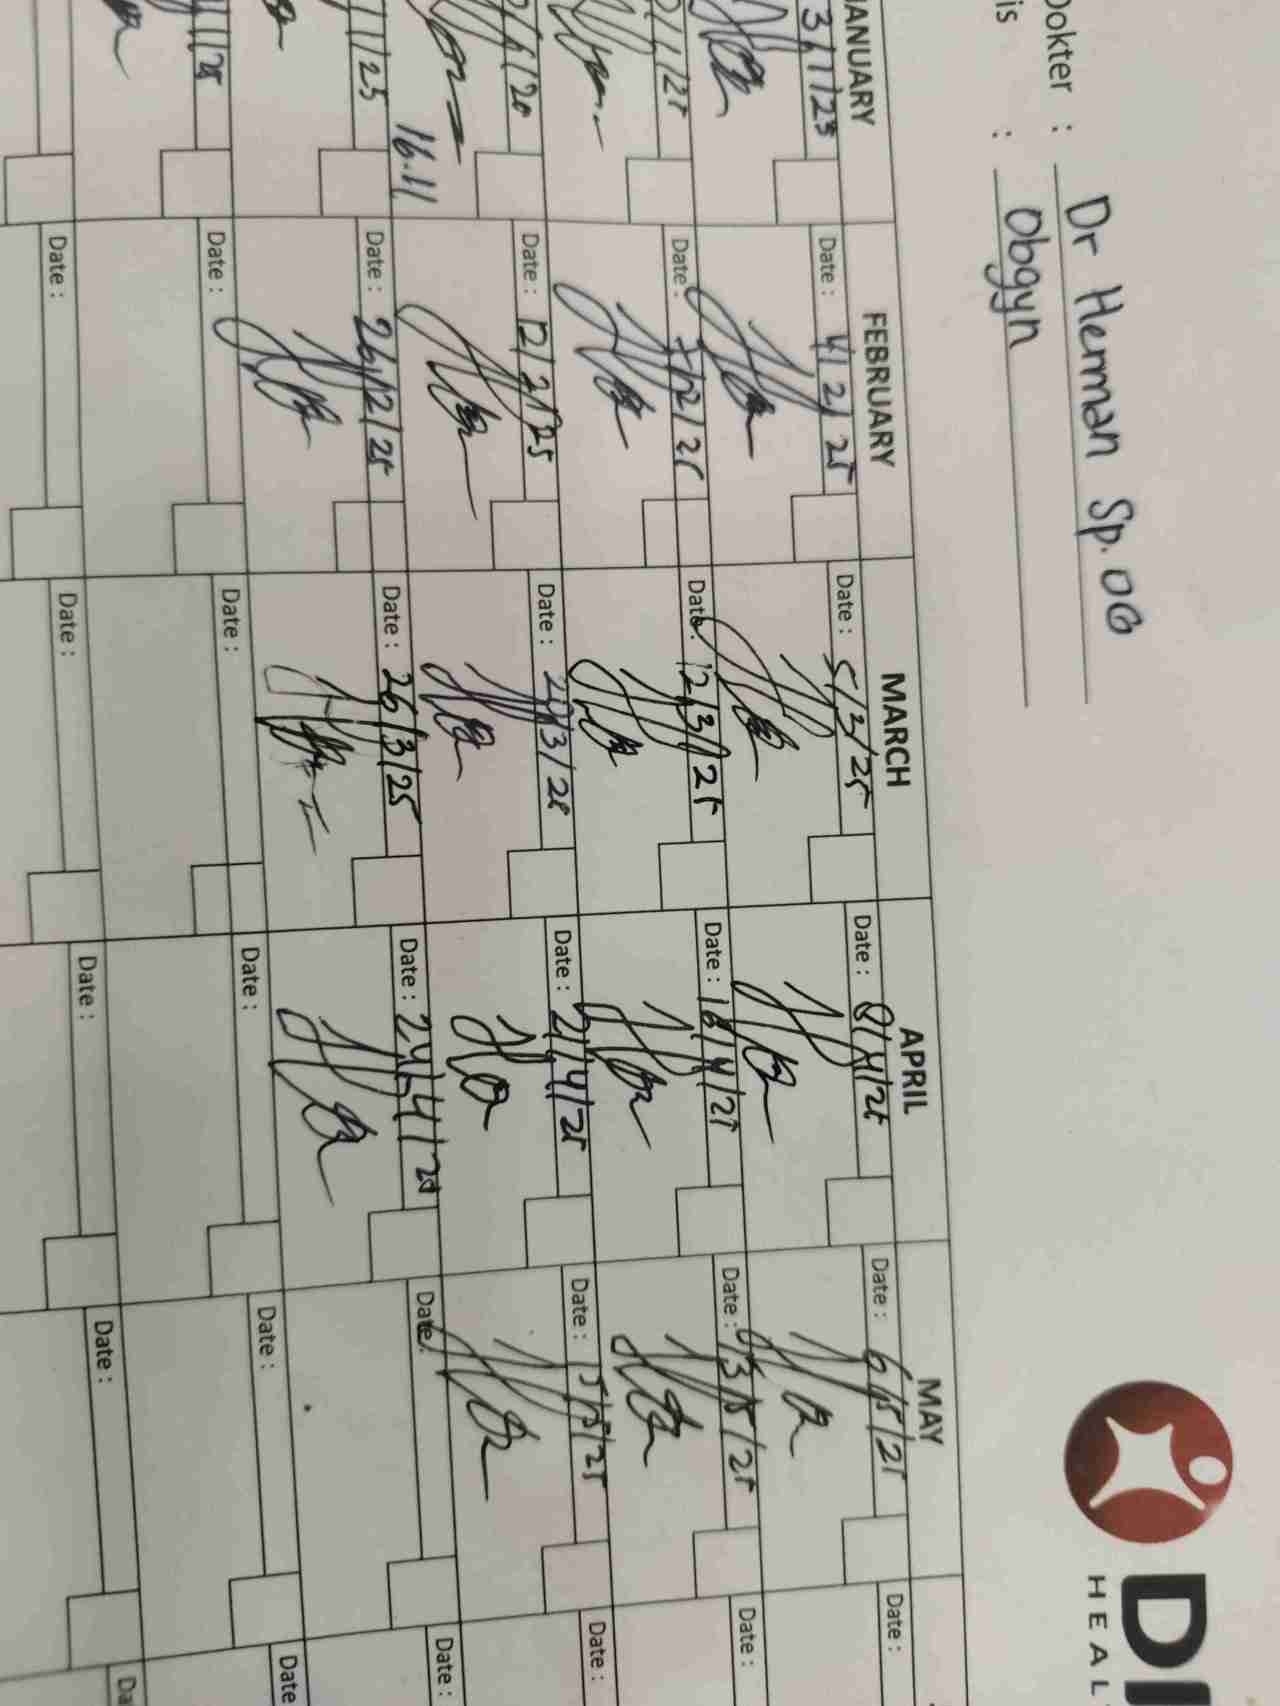 DI
HEAL
Dokter : Dr Herman Sp. OG
is : Obgyn
JANUARY FEBRUARY MARCH APRIL MAY
3/1/25 Date : 4/2/25 Date : 5/3/25 Date : 8/4/25 Date : 6/5/25 Date :
Date : 7/2/25 Date : 12/3/25 Date : 18/4/25 Date : 13/5/25 Date :
Date : 12/2/25 Date : Date : 21/4/25 Date : Date :
16.11
Date : 26/2/25 Date : 26/3/25 Date : 24/4/25 Date : Date :
Date : Date : Date : Date : Date
Date : Date : Date : Date : Da